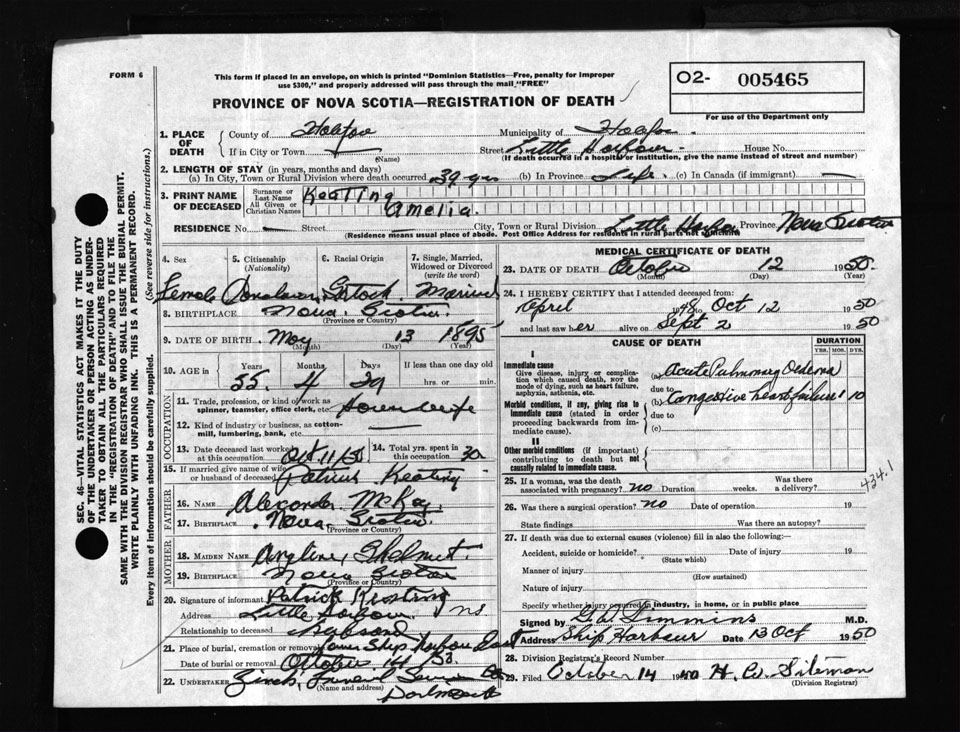 FORM 6
This form if placed in an envelope, on which is printed "Dominion Statistics—Free, penalty for improper
use $300," and properly addressed will pass through the mail "FREE"
O2- 005465
For use of the Department only
PROVINCE OF NOVA SCOTIA—REGISTRATION OF DEATH
1. PLACE OF DEATH
County of Halifax Municipality of Halifax
If in City or Town (Name) Street Little Harbour House No.
(If death occurred in a hospital or institution, give the name instead of street and number)
2. LENGTH OF STAY (in years, months and days)
(a) In City, Town or Rural Division where death occurred 39 yrs (b) In Province Life (c) In Canada (if immigrant) —
3. PRINT NAME OF DECEASED
Surname or Last Name Keatting
All Given or Christian Names Amelia.
RESIDENCE No. — Street — City, Town or Rural Division Little Harbor Province Nova Scotia
(Residence means usual place of abode. Post Office Address for residents in rural parts not sufficient)
4. Sex 5. Citizenship (Nationality) 6. Racial Origin 7. Single, Married, Widowed or Divorced (write the word)
Female Canadian Scotch Married
8. BIRTHPLACE Nova Scotia
(Province or Country)
9. DATE OF BIRTH May 13 1895
(Month) (Day) (Year)
10. AGE in Years Months Days If less than one day old
55 4 29 hrs. or min.
OCCUPATION
11. Trade, profession, or kind of work as spinner, teamster, office clerk, etc. Housewife
12. Kind of industry or business, as cotton-mill, lumbering, bank, etc. —
13. Date deceased last worked at this occupation Oct 11/50 14. Total yrs. spent in this occupation 30
15. If married give name of wife or husband of deceased Keating
FATHER
16. NAME Alexander McKay
17. BIRTHPLACE Nova Scotia
(Province or Country)
MOTHER
18. MAIDEN NAME
19. BIRTHPLACE Nova Scotia
(Province or Country)
20. Signature of informant Patrick Keating
Address Little Harbour NS
Relationship to deceased Husband
21. Place of burial, cremation or removal Lower Ship Harbour East
Date of burial or removal October 14
22. UNDERTAKER Zinck's Funeral Service
(Name and address)
Dartmouth
MEDICAL CERTIFICATE OF DEATH
23. DATE OF DEATH October 12 1950
(Month) (Day) (Year)
24. I HEREBY CERTIFY that I attended deceased from
April 1948 to Oct 12 1950
and last saw her alive on Sept 2 1950
CAUSE OF DEATH
DURATION
YRS. MOS. DYS
I
Immediate cause
Give disease, injury or complication which caused death, NOT the mode of dying, such as heart failure, asphyxia, asthenia, etc.
(a) Acute Pulmonary Oedema
due to
Morbid conditions, if any, giving rise to immediate cause (stated in order proceeding backwards from immediate cause).
(b) Congestive heart failure 1 10
due to
(c)
II
Other morbid conditions (if important) contributing to death but not causally related to immediate cause.
434.1
25. If a woman, was the death associated with pregnancy? no Duration weeks. Was there a delivery?
26. Was there a surgical operation? no Date of operation 19
State findings Was there an autopsy?
27. If death was due to external causes (violence) fill in also the following:—
Accident, suicide or homicide? Date of injury 19
(State which)
Manner of injury
(How sustained)
Nature of injury
Specify whether injury occurred in industry, in home, or in public place
Signed by G W Timmins M.D.
Address Ship Harbour Date 13 Oct 1950
28. Division Registrar's Record Number
29. Filed October 14 19 H. W. Siteman
(Division Registrar)
SEC. 46—VITAL STATISTICS ACT MAKES IT THE DUTY
OF THE UNDERTAKER OR PERSON ACTING AS UNDER-
TAKER TO OBTAIN ALL THE PARTICULARS REQUIRED
IN THE "REGISTRATION OF DEATH" AND TO FILE THE
SAME WITH THE DIVISION REGISTRAR WHO SHALL ISSUE THE BURIAL PERMIT.
WRITE PLAINLY WITH UNFADING INK. THIS IS A PERMANENT RECORD.
Every item of Information should be carefully supplied. (See reverse side for instructions.)